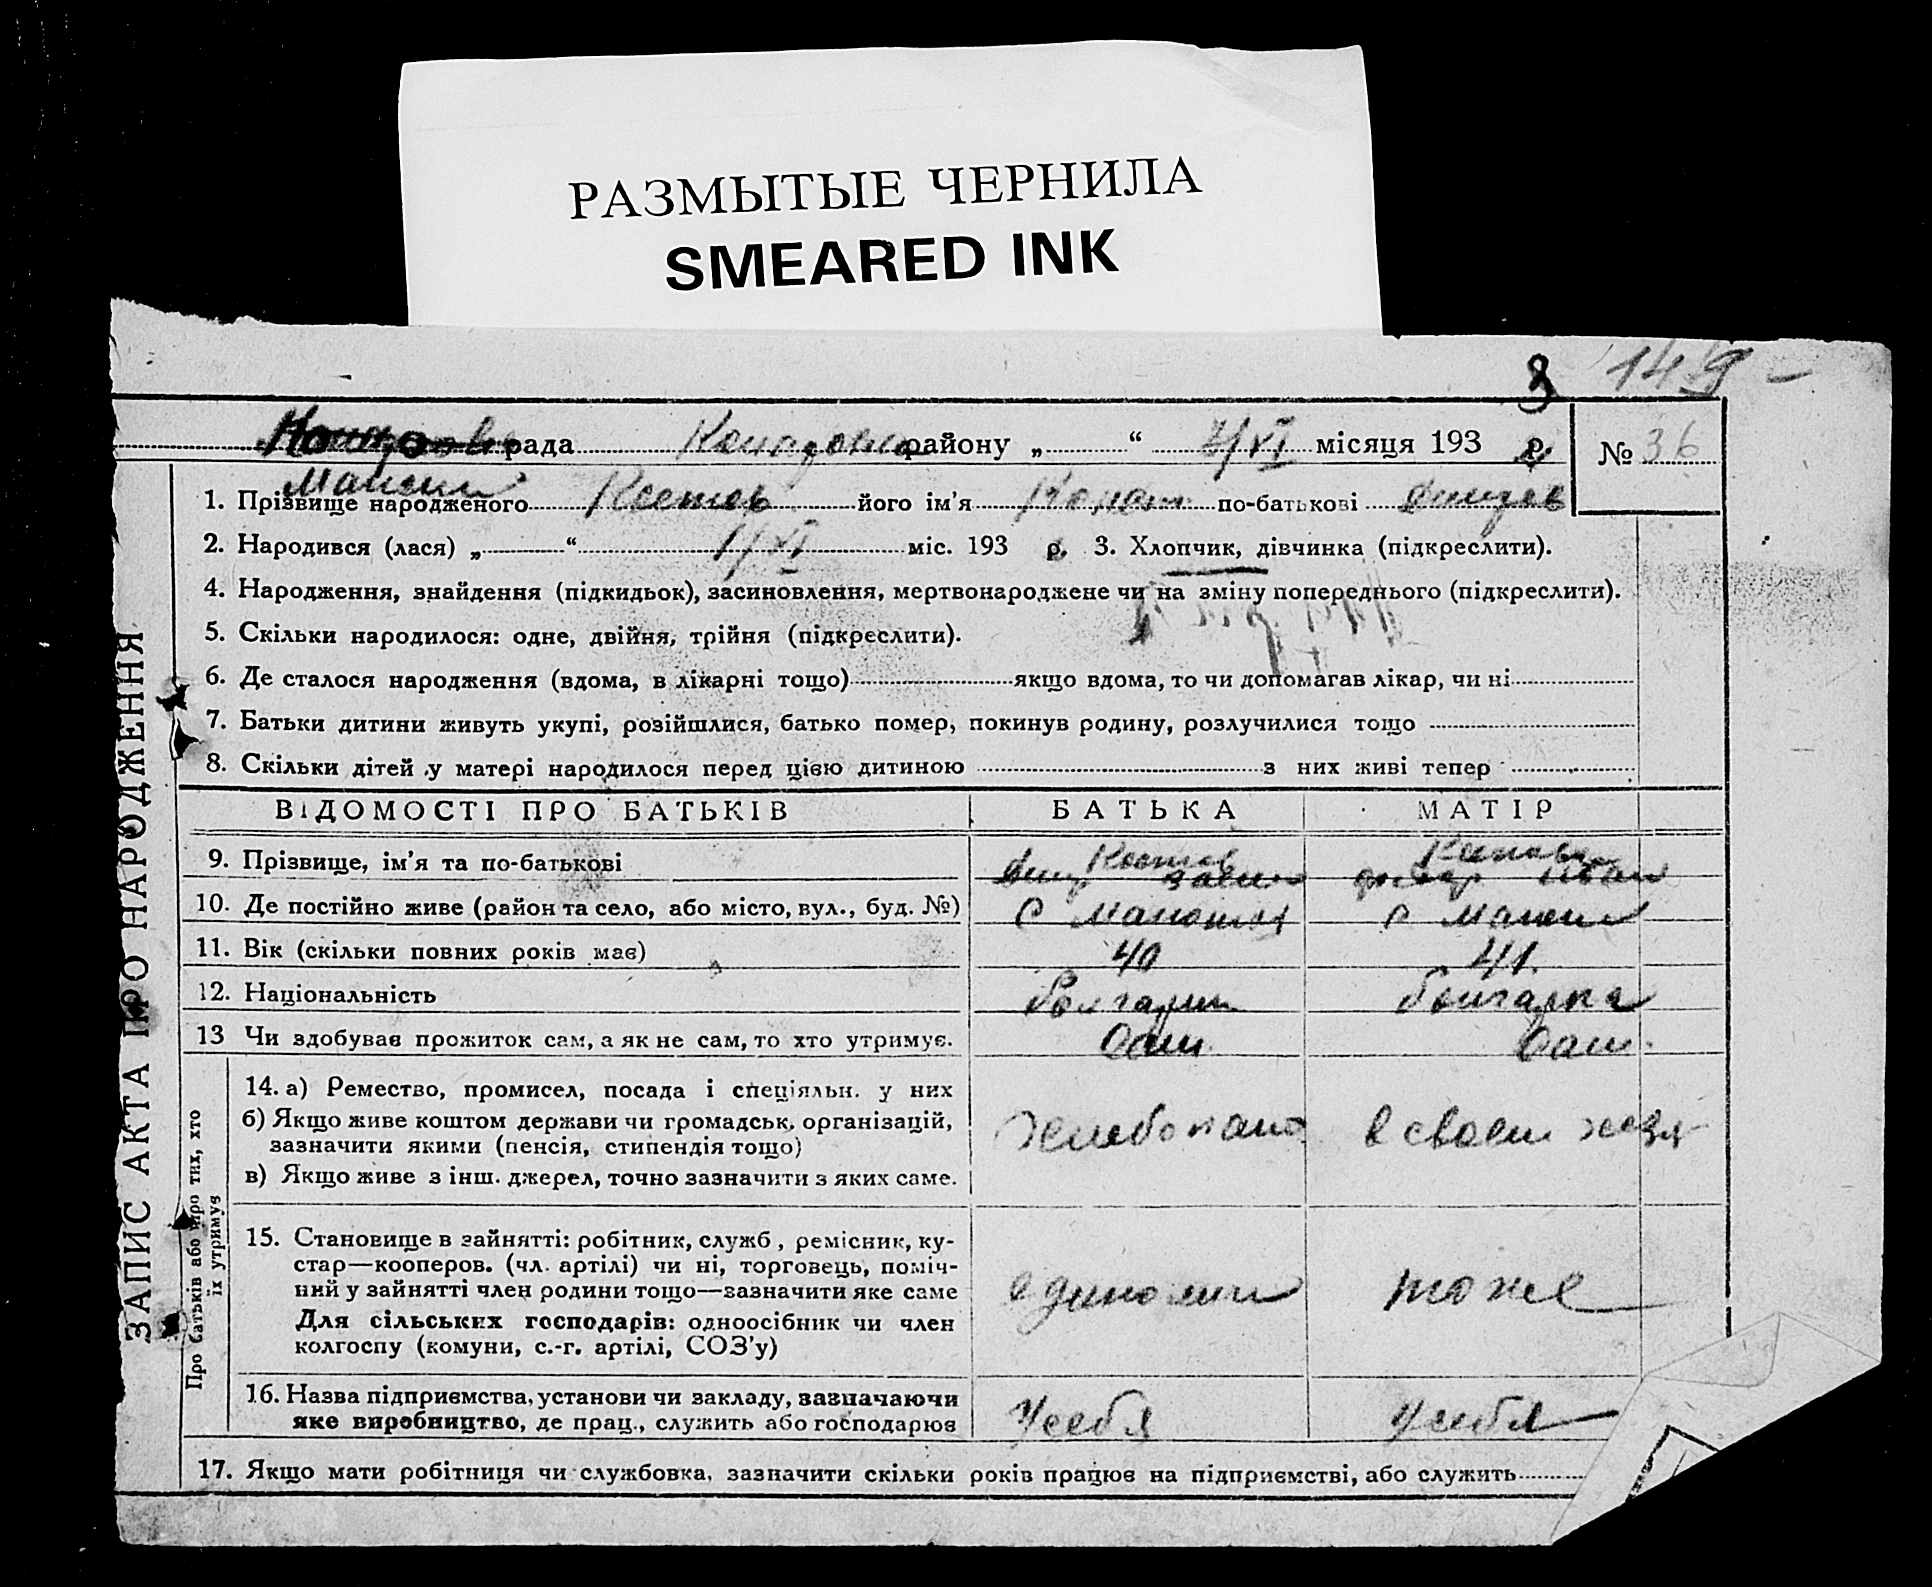 РАЗМЫТЫЕ ЧЕРНИЛА
SMEARED INK
149 -
рада району „ “ 7/XI місяця 193 2 р. № 36
1. Прізвище народженого його ім'я по-батькові
2. Народився (лася) „ “ 1/XI міс. 193 р. 3. Хлопчик, дівчинка (підкреслити).
4. Народження, знайдення (підкидьок), засиновлення, мертвонароджене чи на зміну попереднього (підкреслити).
5. Скільки народилося: одне, двійня, трійня (підкреслити).
6. Де сталося народження (вдома, в лікарні тощо) якщо вдома, то чи допомагав лікар, чи ні
7. Батьки дитини живуть укупі, розійшлися, батько помер, покинув родину, розлучилися тощо
8. Скільки дітей у матері народилося перед цією дитиною з них живі тепер
ВІДОМОСТІ ПРО БАТЬКІВ БАТЬКА МАТІР
9. Прізвище, ім'я та по-батькові Костов
10. Де постійно живе (район та село, або місто, вул., буд. №) с с
11. Вік (скільки повних років має) 40 41.
12. Національність болгарин болгарка
13 Чи здобуває прожиток сам, а як не сам, то хто утримує. Сам. Сам.
14. а) Ремество, промисел, посада і спеціяльн. у них
б) Якщо живе коштом держави чи громадськ. організацій,
зазначити якими (пенсія, стипендія тощо) в своем
в) Якщо живе з інш. джерел, точно зазначити з яких саме.
15. Становище в зайнятті: робітник, служб., ремісник, ку-
стар—кооперов. (чл. артілі) чи ні, торговець, поміч-
ний у зайнятті член родини тощо—зазначити яке саме
тоже
Для сільських господарів: одноосібник чи член
колгоспу (комуни, с.-г. артілі, СОЗ'у)
16. Назва підприємства, установи чи закладу, зазначаючи
яке виробництво, де прац., служить або господарює У себя У себя
17. Якщо мати робітниця чи службовка, зазначити скільки років працює на підприємстві, або служить
ЗАПИС АКТА ПРО НАРОДЖЕННЯ
Про батьків або про тих, хто
їх утримує